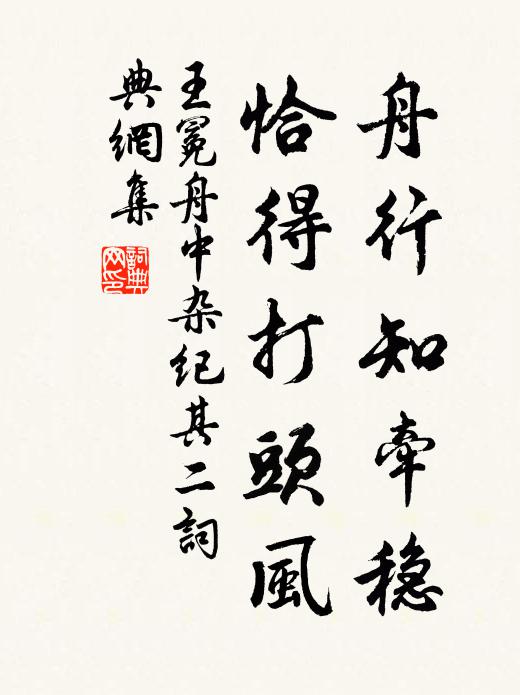 舟行知牵穏
恰得打頭風
王冕舟中杂纪其二詞
典網集
詞典网印